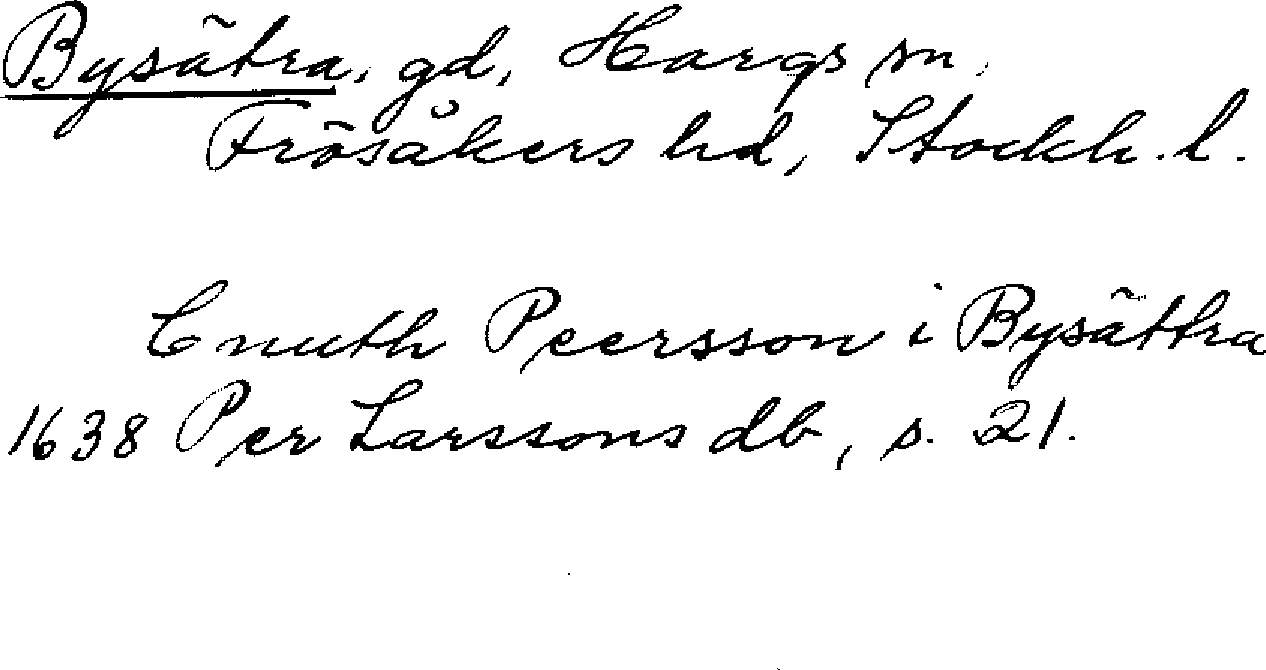 Bysätra, gd, Hargs sn,
Frösåkers hd, Stockh. l.
Cnuth Peersson i Bysättra
1638 Per Larssons db, s. 21.